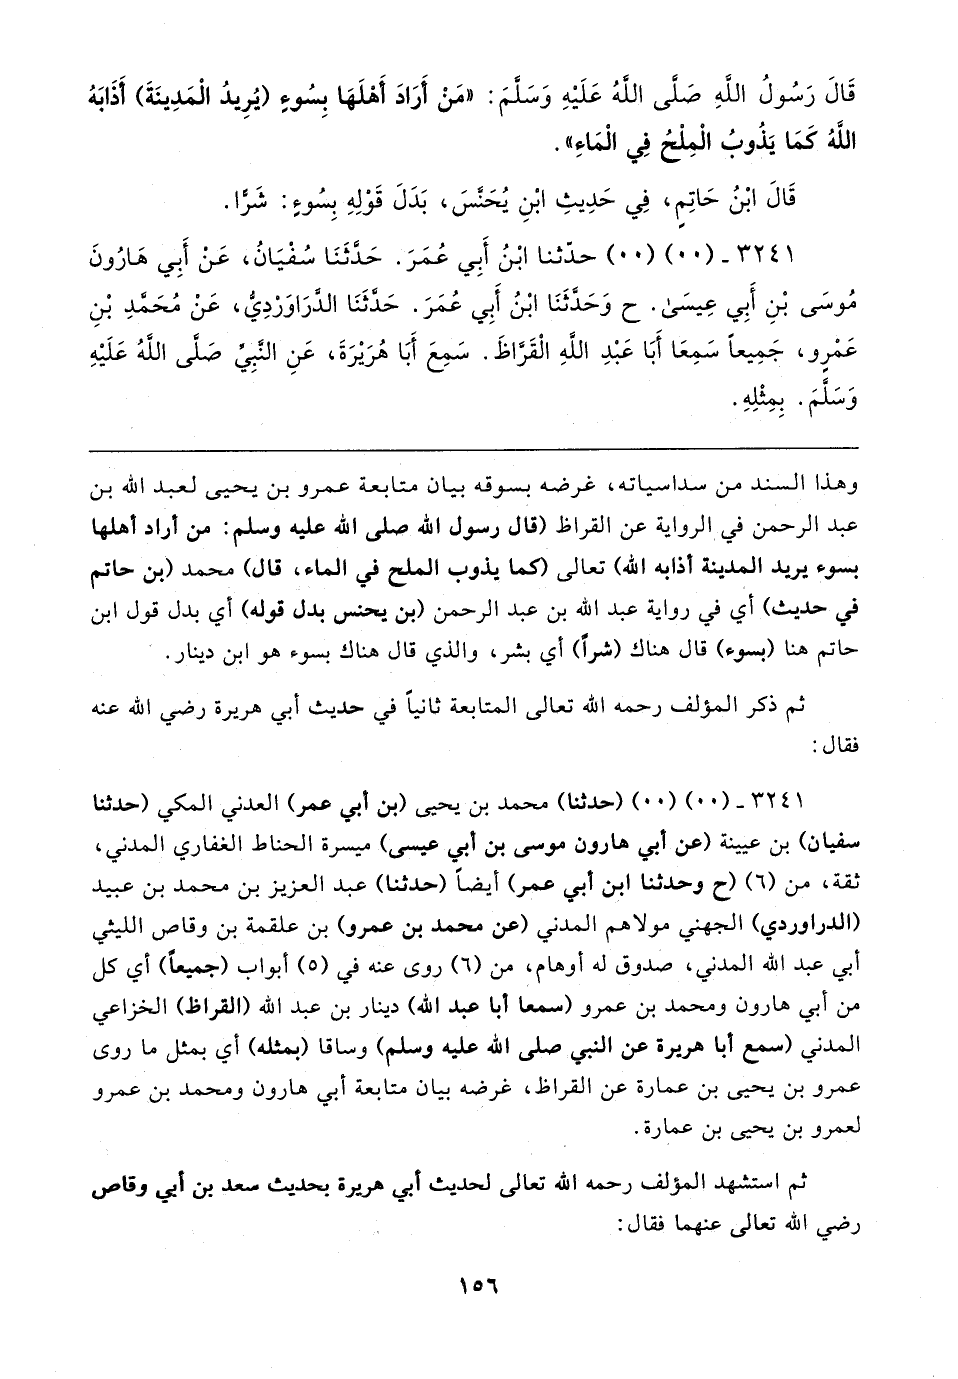 قَالَ رَسُولُ اللَّهِ صَلَّى اللَّهُ عَلَيْهِ وَسَلَّمَ: «مَنْ أَرَادَ أَهْلَهَا بِسُوءٍ (يُرِيدُ الْمَدِينَةَ) أَذَابَهُ
اللَّهُ كَمَا يَذُوبُ الْمِلْحُ فِي الْمَاءِ».
قَالَ ابْنُ حَاتِمٍ، فِي حَدِيثِ ابْنِ يُحَنَّسَ، بَدَلَ قَوْلِهِ بِسُوءٍ: شَرًّا.
٣٢٤١ - (٠٠) (٠٠) حدّثنا ابْنُ أَبِي عُمَرَ. حَدَّثَنَا سُفْيَانُ، عَنْ أَبِي هَارُونَ
مُوسَى بْنِ أَبِي عِيسَىٰ. ح وَحَدَّثَنَا ابْنُ أَبِي عُمَرَ. حَدَّثَنَا الدَّرَاوَرْدِيُّ، عَنْ مُحَمَّدِ بْنِ
عَمْرٍو، جَمِيعاً سَمِعَا أَبَا عَبْدِ اللَّهِ الْقَرَّاظَ. سَمِعَ أَبَا هُرَيْرَةَ، عَنِ النَّبِيِّ صَلَّى اللَّهُ عَلَيْهِ
وَسَلَّمَ. بِمِثْلِهِ.
وهذا السند من سداسياته، غرضه بسوقه بيان متابعة عمرو بن يحيى لعبد الله بن
عبد الرحمن في الرواية عن القراظ (قال رسول الله صلى الله عليه وسلم: من أراد أهلها
بسوء يريد المدينة أذابه الله) تعالى (كما يذوب الملح في الماء، قال) محمد (بن حاتم
في حديث) أي في رواية عبد الله بن عبد الرحمن (بن يحنس بدل قوله) أي بدل قول ابن
حاتم هنا (بسوء) قال هناك (شراً) أي بشر، والذي قال هناك بسوء هو ابن دينار.
ثم ذكر المؤلف رحمه الله تعالى المتابعة ثانياً في حديث أبي هريرة رضي الله عنه
فقال:
٣٢٤١ - (٠٠) (٠٠) (حدثنا) محمد بن يحيى (بن أبي عمر) العدني المكي (حدثنا
سفيان) بن عيينة (عن أبي هارون موسى بن أبي عيسى) ميسرة الحناط الغفاري المدني،
ثقة، من (٦) (ح وحدثنا ابن أبي عمر) أيضاً (حدثنا) عبد العزيز بن محمد بن عبيد
(الدراوردي) الجهني مولاهم المدني (عن محمد بن عمرو) بن علقمة بن وقاص الليثي
أبي عبد الله المدني، صدوق له أوهام، من (٦) روى عنه في (٥) أبواب (جميعاً) أي كل
من أبي هارون ومحمد بن عمرو (سمعا أبا عبد الله) دينار بن عبد الله (القراظ) الخزاعي
المدني (سمع أبا هريرة عن النبي صلى الله عليه وسلم) وساقا (بمثله) أي بمثل ما روى
عمرو بن يحيى بن عمارة عن القراظ، غرضه بيان متابعة أبي هارون ومحمد بن عمرو
لعمرو بن يحيى بن عمارة.
ثم استشهد المؤلف رحمه الله تعالى لحديث أبي هريرة بحديث سعد بن أبي وقاص
رضي الله تعالى عنهما فقال:
١٥٦